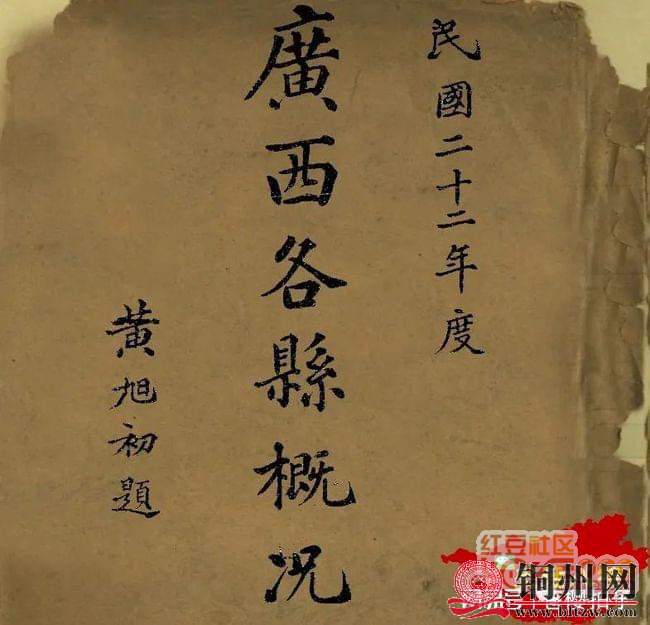 民國二十二年度
廣西各縣概況
黃旭初題
红豆社区
铜州网
www.bltzw.com